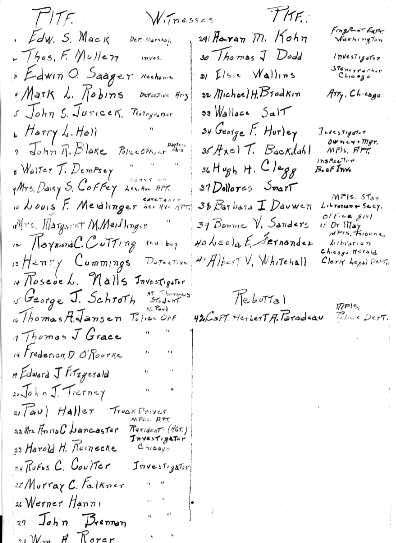 Pltf. Witnesses
1 Edw. S. Mack
2 Thos. F. Mullen Inves.
3 Edwin O. Saager Mechanic
4 Mark L. Robins Detective Brg
5 John S. Juricek
6 Harry L. Holl " "
7 John R. Blake Policeman
8 Walter T. Dempsey " "
9 Mrs. Daisy S. Coffey
10 Louis F. Meidlinger
11 Mrs. Margaret M. Meidlinger
12 Raymond C. Cutting
13 Henry Cummings Detective
14 Roscoe L. Nalls Investigator
15 George J. Schroth St. Thomas Student St. Paul
16 Thomas A. Jansen Police Off
17 Thomas J Grace " "
18 Frederick D O'Rourke " "
19 Edward J Fitzgerald " "
20 John J. Tierney " "
21 Paul Haller Truck Driver Mpls.
22 Mrs Anna C Lancaster Resident
23 Harold H. Reinecke Investigator Chicago
24 Rufus C. Coulter Investigator
25 Murray C. Falkner " "
26 Werner Hanni " "
27 John Brennan " "
28 Wm. H. Rorer
Pltf.:
29 Aaran M. Kohn Fingerprint Washington
30 Thomas J Dodd Investigator
31 Elsie Wallins Stenographer Chicago
32 Michael H. Brodkin Atty. Chicago
33 Wallace Salt
34 George F. Hurley Investigator
35 Axel T. Backdahl Owner + Mgr. Mpls. Apt.
36 Hugh H. Clegg Inspector
37 Dollores Smart
38 Barbara I Dauwen Mpls. Star Librarian + Secy.
39 Bonnie V. Sanders Office girl
40 Leola F. Fernandez Mpls. Tribune Librarian
41 Albert V. Whitehall Chicago Herald Clerk Legal Dept.
Rebuttal
42 Capt Herbert A. Paradeau Mpls. Police Dept.